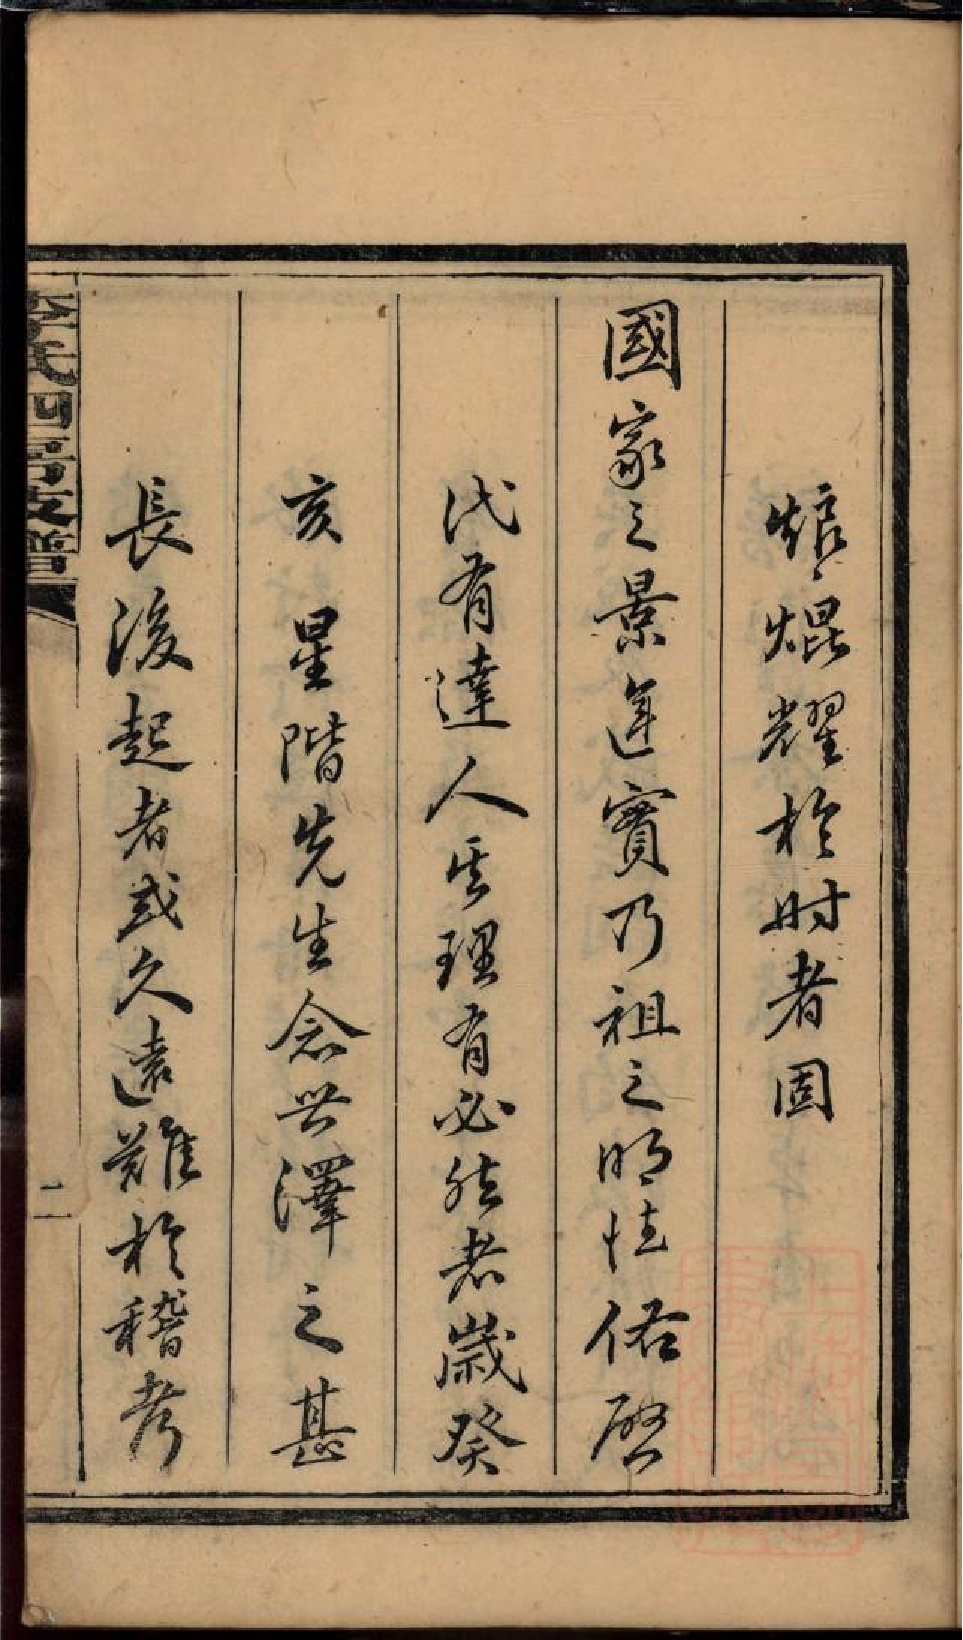 焜耀於时者固
國家之景運實乃祖之明德佑啓
代有達人其理有必然者歲癸
亥星階先生念世澤之甚
長後起者或久遠難於稽考
李氏四房支譜
二